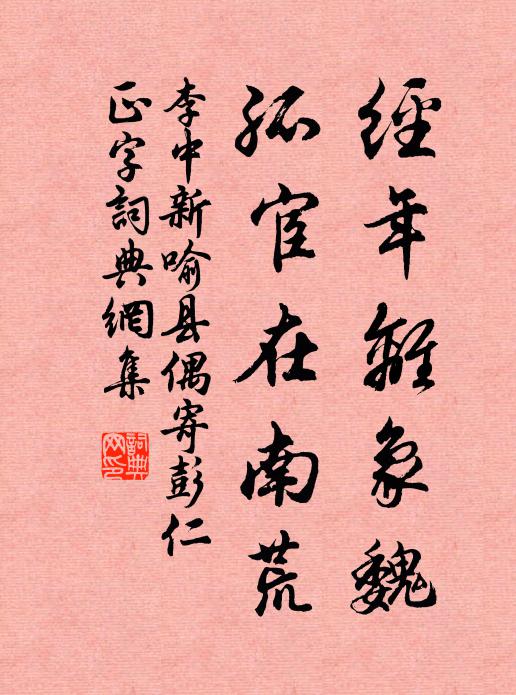 經年離象魏
孤宦在南荒
李中新喻县偶寄彭仁
正字詞典網集
詞典網印